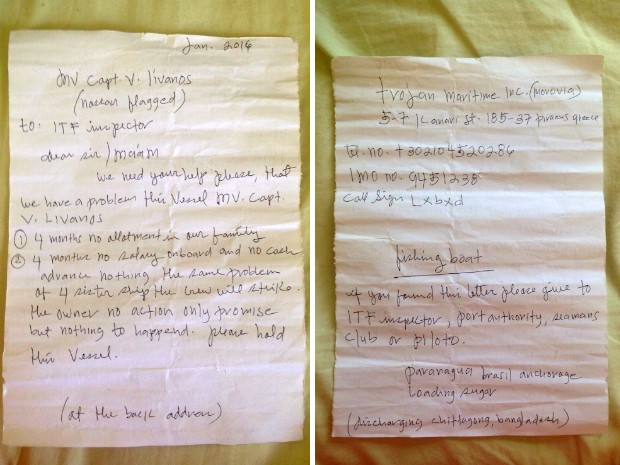 Jan. 2016
MV Capt. V. Livanos
flagged)
to. ITF inspector
dear sir / maam
we need your help please, that
we have a problem this Vessel MV. Capt.
V. Livanos
① 4 months no allotment in our family
② 4 months no salary onboard and no cash
advance nothing the same problem
of 4 sister ship the crew will strike.
the owner no action only promise
but nothing to happend. please hold
this Vessel.
(at the back address)
trojan maritime inc. (monrovia)
5-7 kanari st. 185-37 piraeus greece
tel. no. +302104520286
IMO no. 9451238
call sign Lxbxd
fishing boat
if you found this letter please give to
ITF inspector, port authority, seamans
club or piloto.
paranagua brasil anchorage
loading sugar
(discharging chittagong, bangladesh)